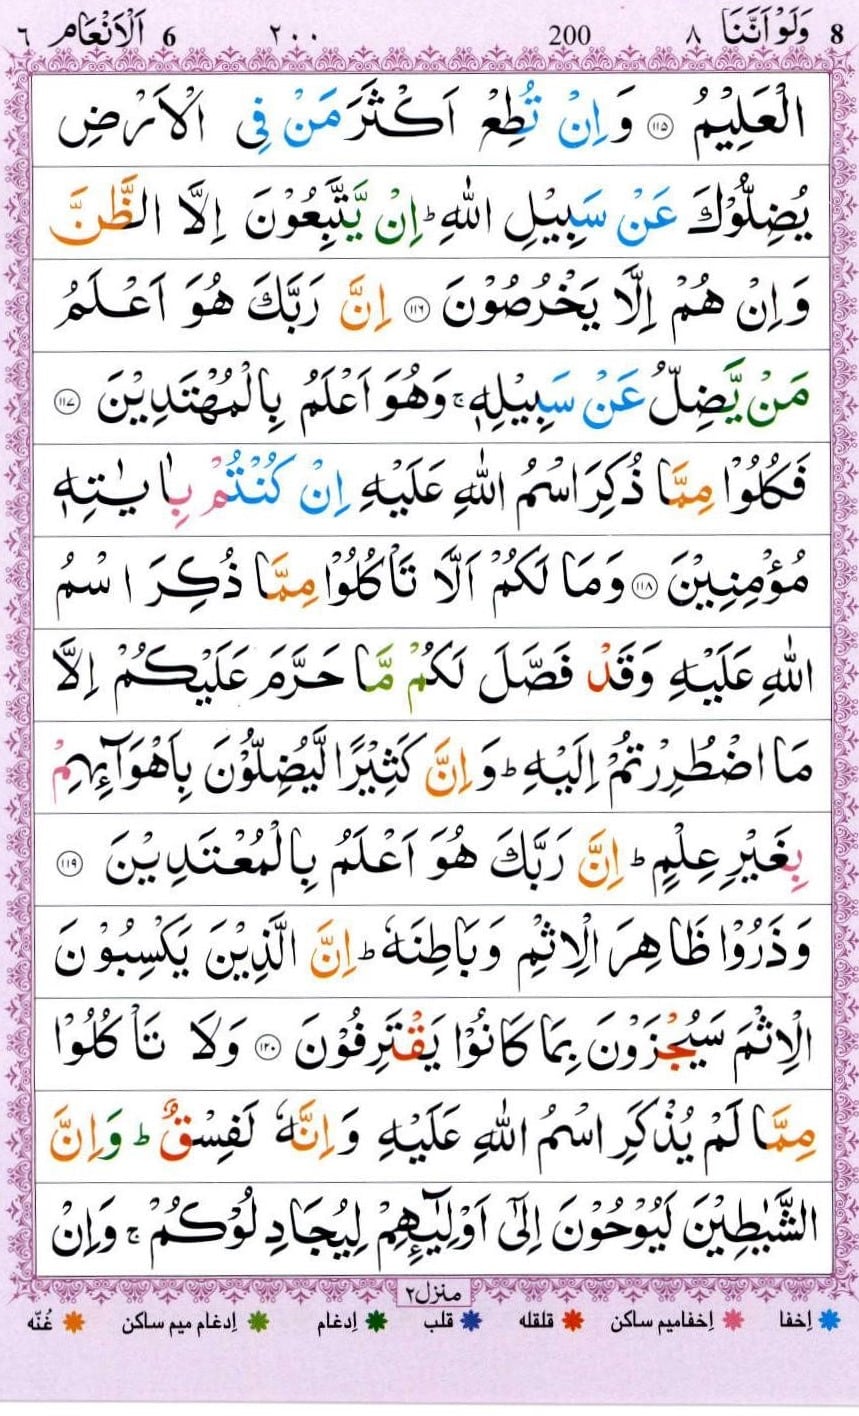 8 وَلَوْ اَنَّنَا ٨ 200 ٢٠٠ 6 اَلْاَنْعَام ٦
الْعَلِيْمُ ﴿١١٥﴾ وَ اِنْ تُطِعْ اَكْثَرَ مَنْ فِى الْاَرْضِ
يُضِلُّوْكَ عَنْ سَبِيْلِ اللّٰهِ ؕ اِنْ يَّتَّبِعُوْنَ اِلَّا الظَّنَّ
وَاِنْ هُمْ اِلَّا يَخْرُصُوْنَ ﴿١١٦﴾ اِنَّ رَبَّكَ هُوَ اَعْلَمُ
مَنْ يَّضِلُّ عَنْ سَبِيْلِهٖ ۚ وَهُوَ اَعْلَمُ بِالْمُهْتَدِيْنَ ﴿١١٧﴾
فَكُلُوْا مِمَّا ذُكِرَ اسْمُ اللّٰهِ عَلَيْهِ اِنْ كُنْتُمْ بِاٰيٰتِهٖ
مُؤْمِنِيْنَ ﴿١١٨﴾ وَمَا لَكُمْ اَلَّا تَاْكُلُوْا مِمَّا ذُكِرَ اسْمُ
اللّٰهِ عَلَيْهِ وَقَدْ فَصَّلَ لَكُمْ مَّا حَرَّمَ عَلَيْكُمْ اِلَّا
مَا اضْطُرِرْتُمْ اِلَيْهِ ؕ وَ اِنَّ كَثِيْرًا لَّيُضِلُّوْنَ بِاَهْوَآئِهِمْ
بِغَيْرِ عِلْمٍ ؕ اِنَّ رَبَّكَ هُوَ اَعْلَمُ بِالْمُعْتَدِيْنَ ﴿١١٩﴾
وَذَرُوْا ظَاهِرَ الْاِثْمِ وَبَاطِنَهٗ ؕ اِنَّ الَّذِيْنَ يَكْسِبُوْنَ
الْاِثْمَ سَيُجْزَوْنَ بِمَا كَانُوْا يَقْتَرِفُوْنَ ﴿١٢٠﴾ وَلَا تَاْكُلُوْا
مِمَّا لَمْ يُذْكَرِ اسْمُ اللّٰهِ عَلَيْهِ وَ اِنَّهٗ لَفِسْقٌ ؕ وَ اِنَّ
الشَّيٰطِيْنَ لَيُوْحُوْنَ اِلٰٓى اَوْلِيٰٓـئِهِمْ لِيُجَادِلُوْكُمْ ۚ وَاِنْ
منزل ٢
اِخفا اِخفامیم ساکن قلقله قلب اِدغام اِدغام میم ساکن غُنّه